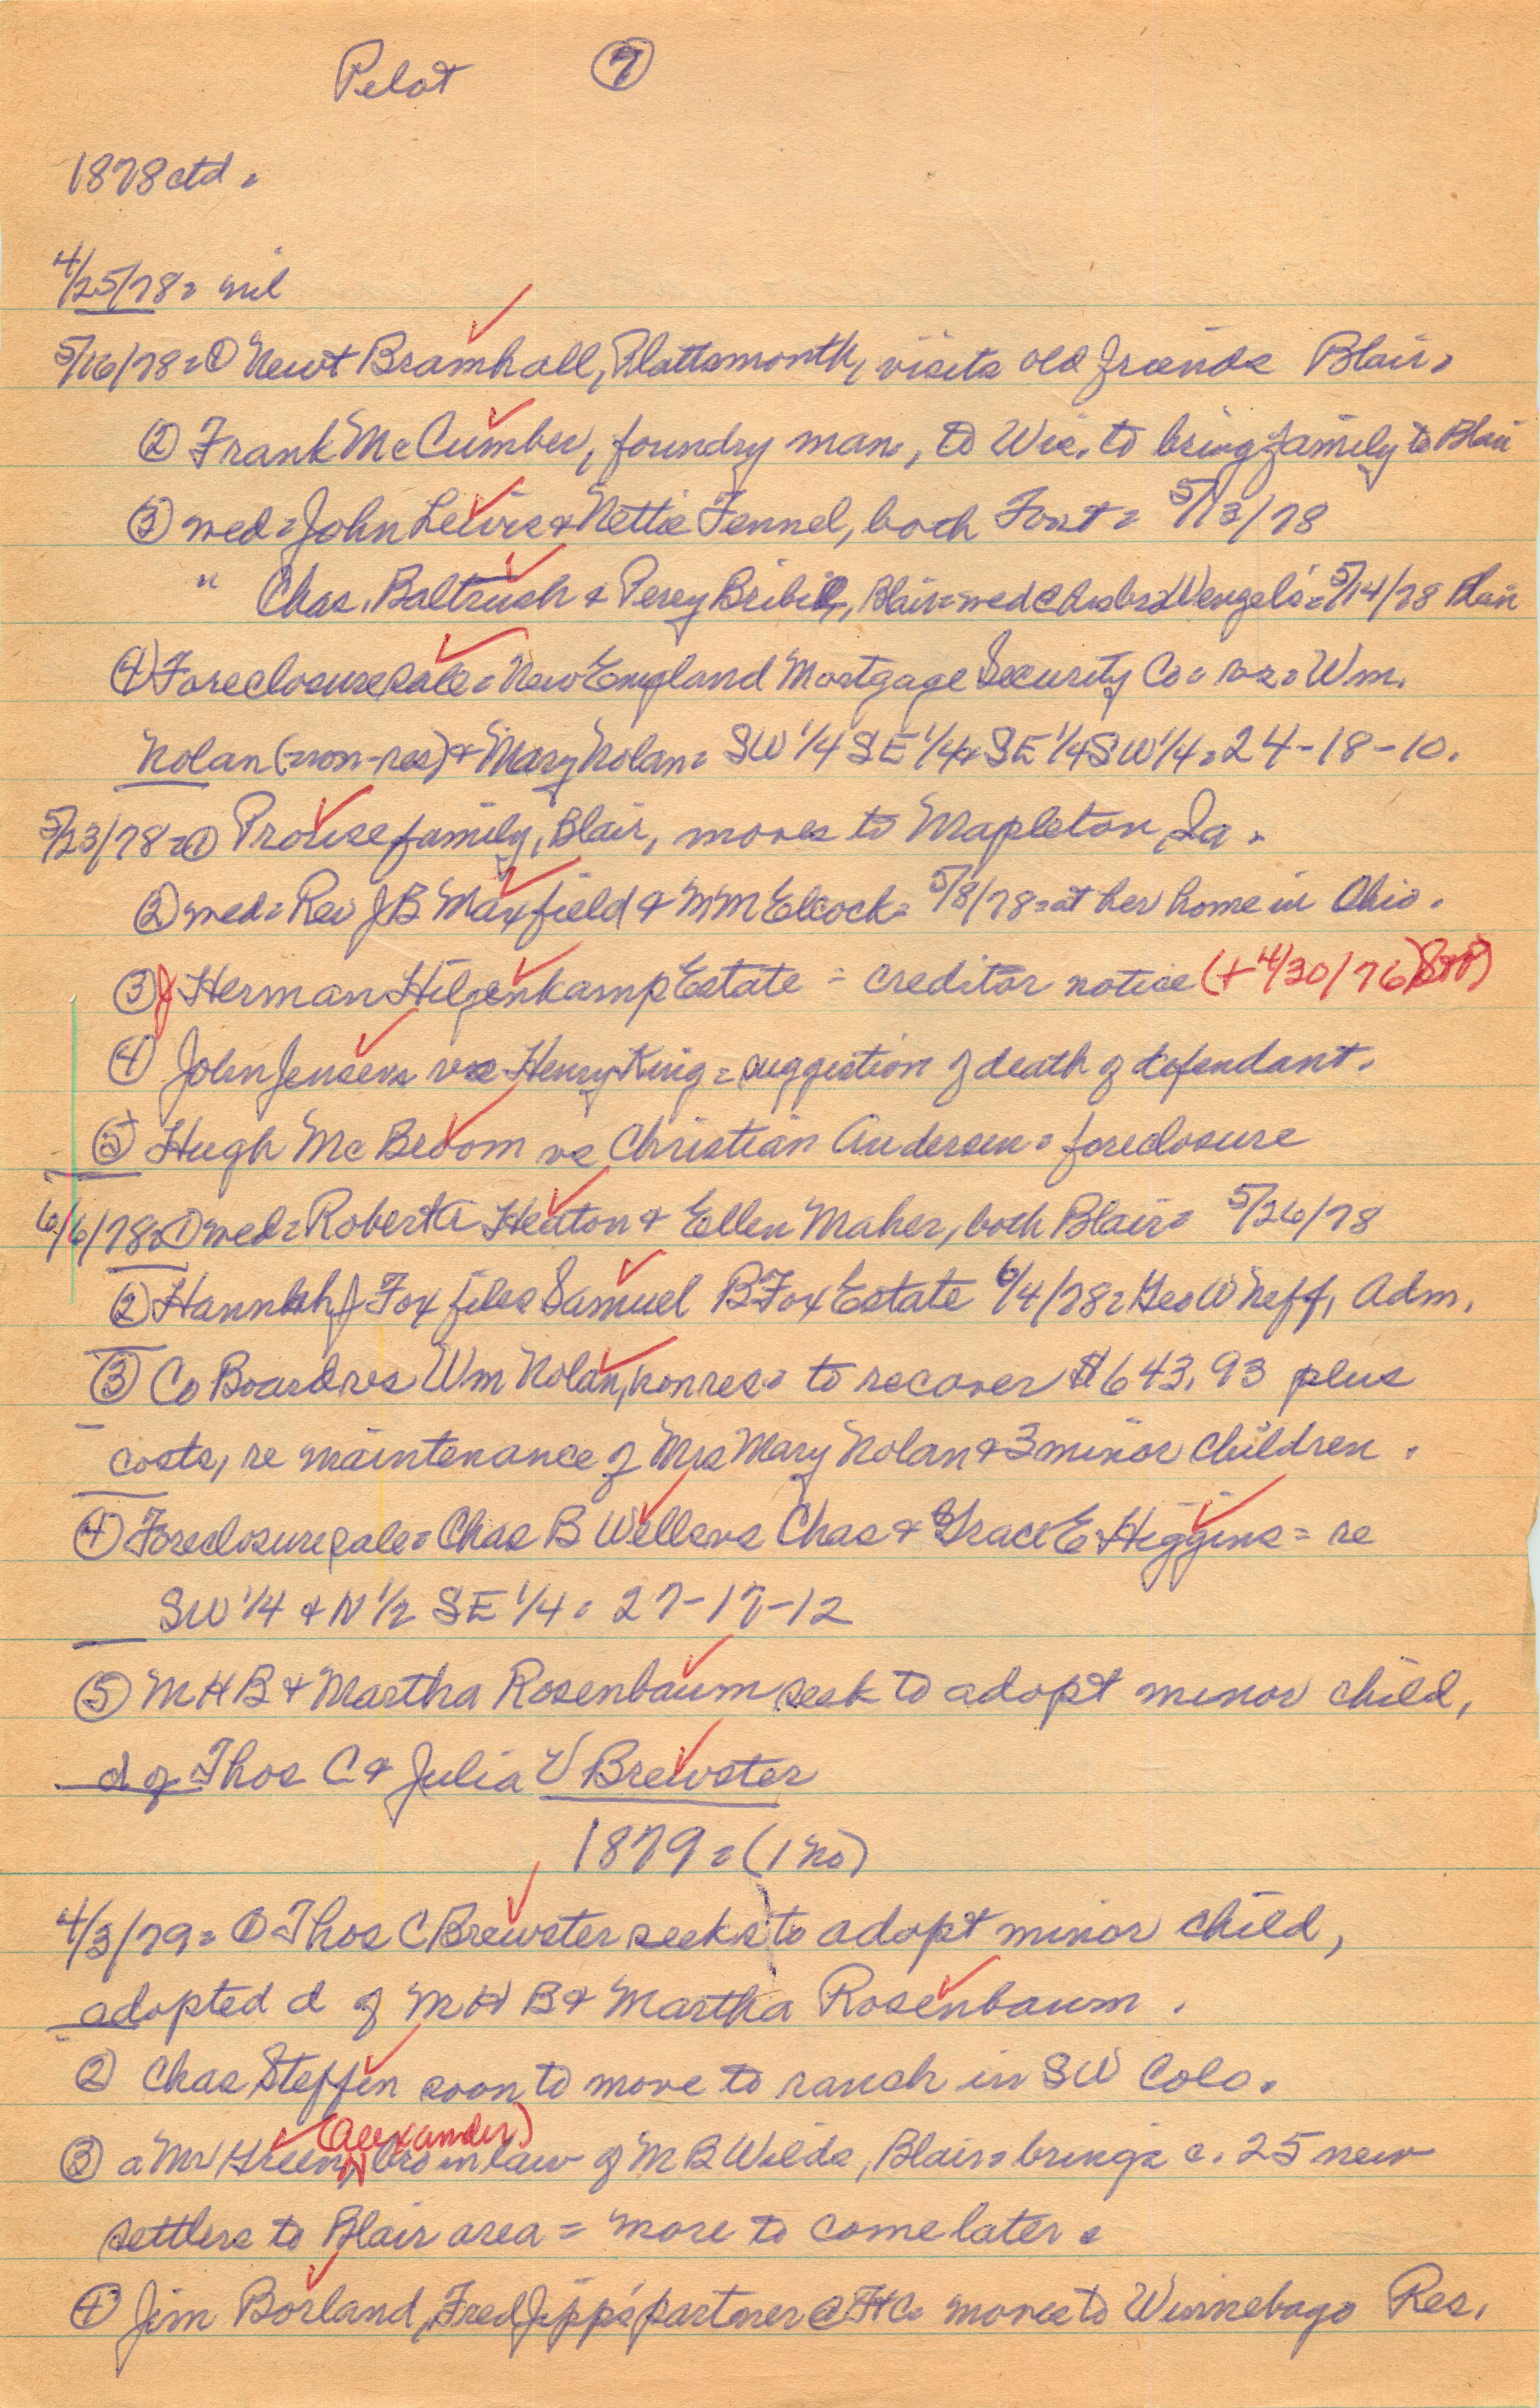 Pilot ⑦
1878 ctd.
4/25/78 = nil
5/16/78 = ① Newt Bramhall, Plattsmouth, visits old friends Blair.
② Frank McCumber, foundry man, to Wis. to bring family to Blair
③ wed = John Lewis & Nettie Fennel, both Font = 5/13/78
" Chas. Baltrush & Percy Bribil, Blair = wed @ Wengel's = 5/14/78 Blair
④ Foreclosure sale = New England Mortgage Security Co = vs = Wm.
Nolan (=non-res) & Mary Nolan = SW 1/4 SE 1/4 & SE 1/4 SW 1/4 = 24-18-10.
5/23/78 = ① Prouse family, Blair, moves to Mapleton, Ia.
② wed = Rev J B Maxfield & M M Elcock = 5/8/78 = at her home in Ohio.
③ J Herman Hilgenkamp Estate = creditor notice (+ 4/30/76)
④ John Jensen vs Henry King = suggestion of death of defendant.
⑤ Hugh McBroom vs Christian Andersen = foreclosure
6/6/78 = ① wed = Robert A Heaton & Ellen Maher, both Blair = 5/26/78
② Hannah J Fox files Samuel B Fox Estate 6/4/78 = Geo W Neff, Adm.
③ Co Board vs Wm Nolan, nonres = to recover $643.93 plus
costs, re maintenance of Mrs Mary Nolan & 3 minor children.
④ Foreclosure sale = Chas B Wells vs Chas & Grace E Higgins = re
SW 1/4 & N 1/2 SE 1/4 = 27-17-12
⑤ M H B & Martha Rosenbaum seek to adopt minor child,
d of Thos C & Julia V Brewster
1879 = (1 no)
4/3/79 = ① Thos C Brewster seeks to adopt minor child,
adopted d of M H B & Martha Rosenbaum.
② Chas Steffin soon to move to ranch in SW Colo.
(Alexander)
③ a Mr Green, bro in law of M B Wilds, Blair = brings c. 25 new
settlers to Blair area = more to come later.
④ Jim Borland, Fred Jipp's partner @ Ft C = moves to Winnebago Res.